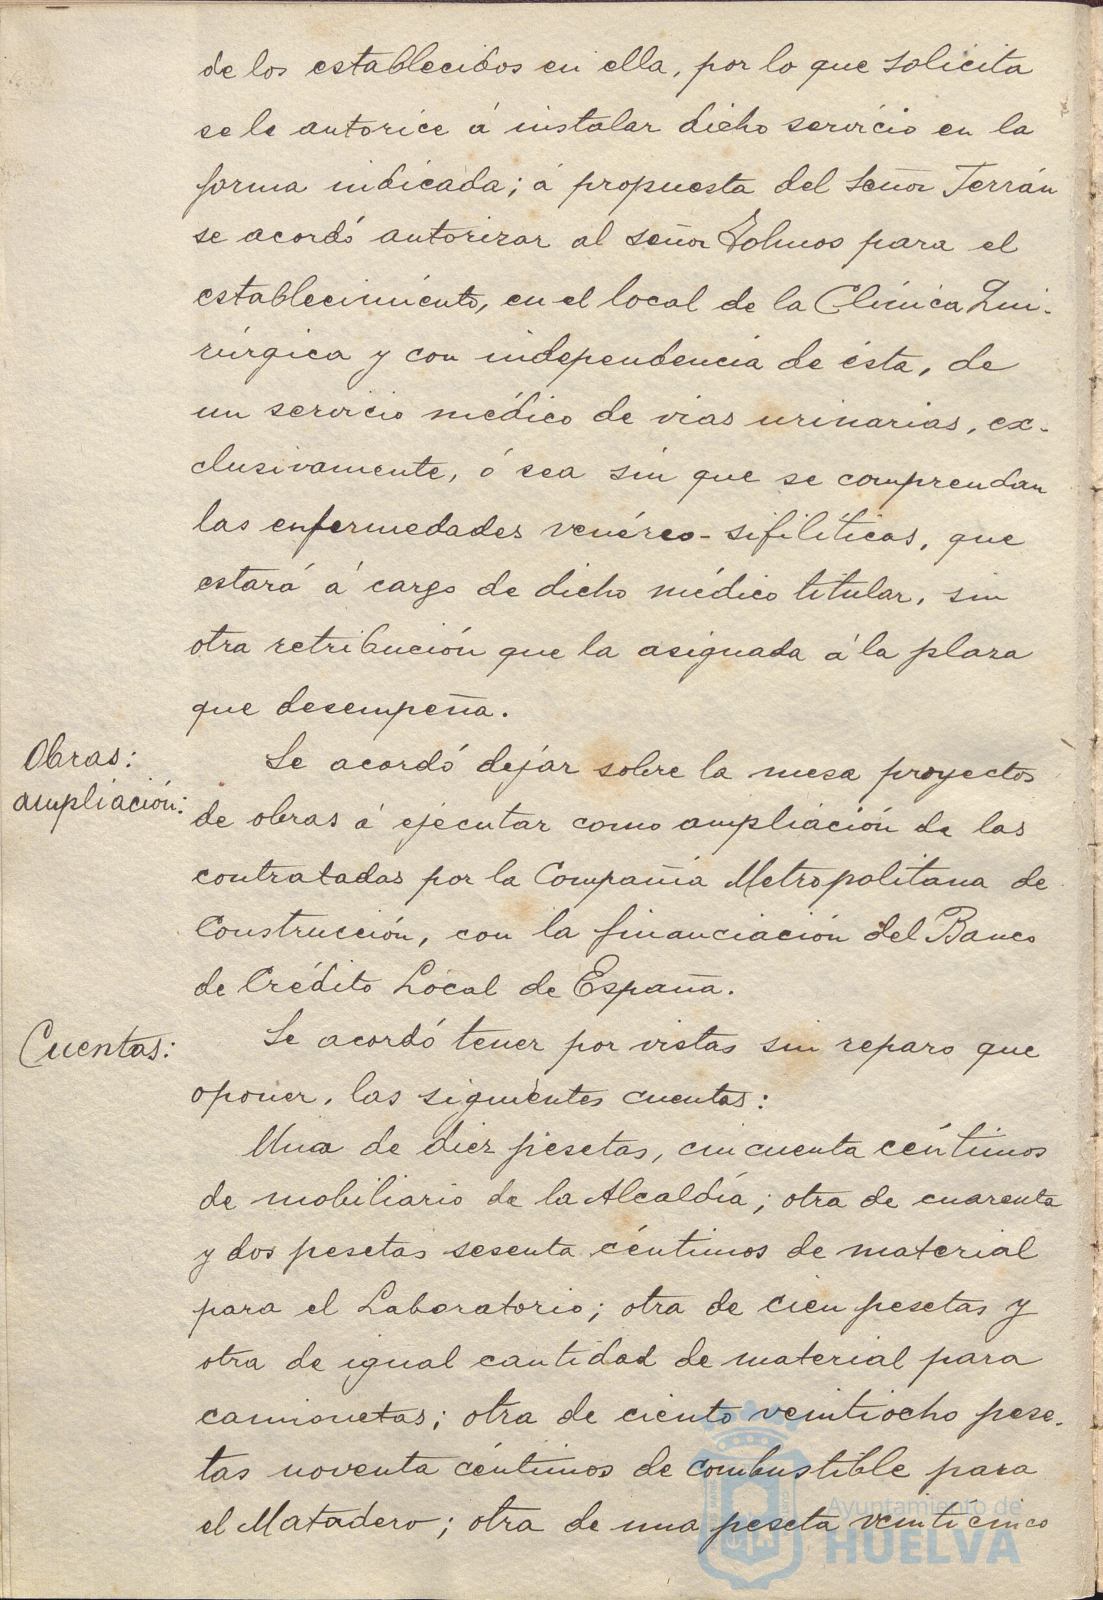 de los establecidos en ella, por lo que solicita
se le autorice á instalar dicho servicio en la
forma indicada; á propuesta del señor Terrán
se acordó autorizar al señor para el
establecimiento, en el local de la Clínica Qui-
rúrgica y con independencia de ésta, de
un servicio médico de vias urinarias, ex-
clusivamente, ó sea sin que se comprendan
las enfermedades venéreo-sifilíticas, que
estará á cargo de dicho médico titular, sin
otra retribución que la asignada á la plaza
que desempeña.
Obras:
ampliación:
Se acordó dejar sobre la mesa proyectos
de obras á ejecutar como ampliación de las
contratadas por la Compañia Metropolitana de
Construcción, con la financiación del Banco
de Crédito Local de España.
Cuentas:
Se acordó tener por vistas sin reparo que
oponer, las siguientes cuentas:
Una de diez pesetas, cincuenta céntimos
de mobiliario de la Alcaldía; otra de cuarenta
y dos pesetas sesenta céntimos de material
para el Laboratorio; otra de cien pesetas y
otra de igual cantidad de material para
camionetas; otra de ciento veintiocho pese-
tas noventa céntimos de combustible para
el Matadero; otra de una peseta veinticinco
Ayuntamiento de
HUELVA